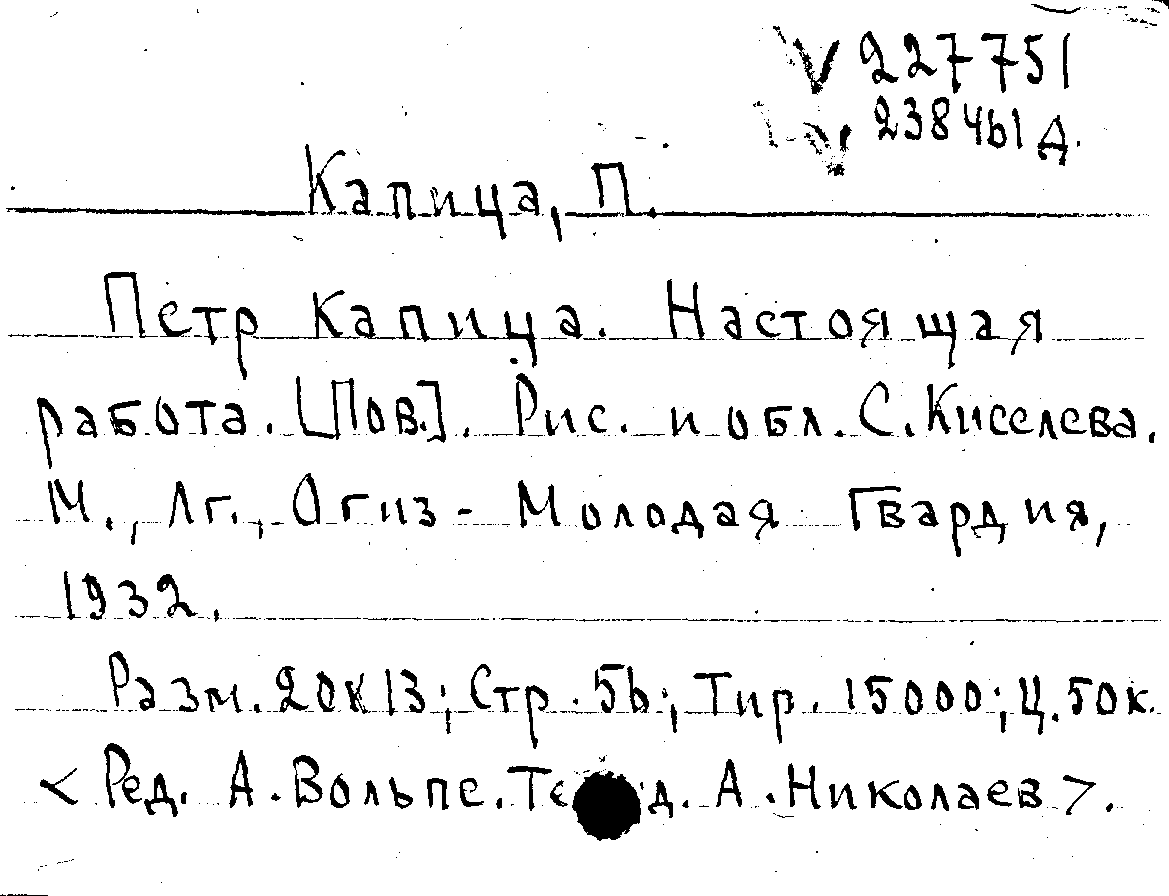 V 227751
V 238461 д.
Капица, П.
Петр Капица. Настоящая
работа. [Пов.]. Рис. и обл. С. Киселева.
М., Лг., Огиз - Молодая Гвардия,
1932.
Разм. 20к13; Стр. 56; Тир. 15000; Ц. 50к.
< Ред. А. Вольпе. А. Николаев >.